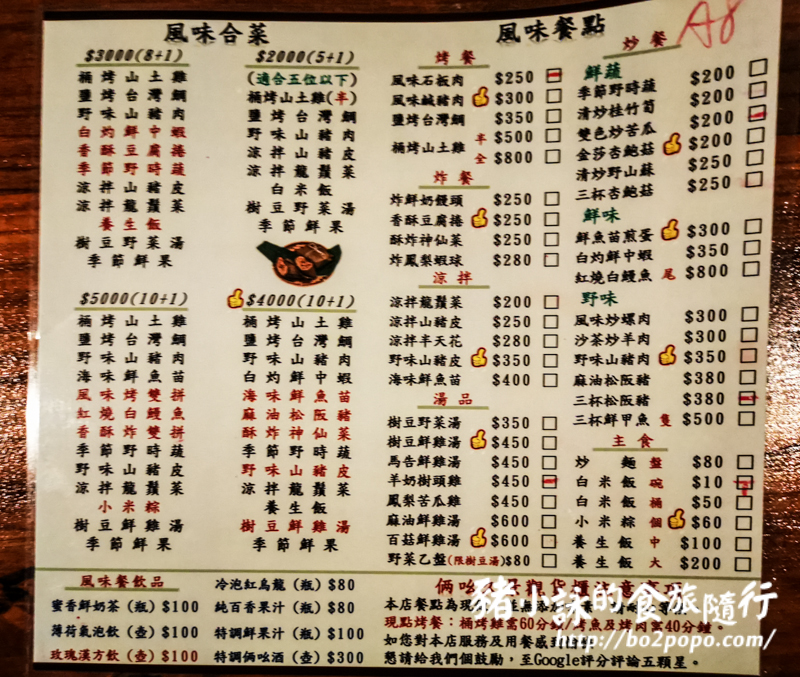 風味合菜
$3000(8+1)
桶烤山土雞
鹽烤台灣鯛
野味山豬肉
白灼鮮中蝦
香酥豆腐捲
季節野時蔬
涼拌山豬皮
涼拌龍鬚菜
養生飯
樹豆野菜湯
季節鮮果
$2000(5+1)
(適合五位以下)
桶烤山土雞(半)
鹽烤台灣鯛
野味山豬肉
涼拌山豬皮
涼拌龍鬚菜
白米飯
樹豆野菜湯
季節鮮果
$5000(10+1)
桶烤山土雞
鹽烤台灣鯛
野味山豬肉
海味鮮魚苗
風味烤雙拼
紅燒白鰻魚
香酥炸雙拼
季節野時蔬
野味山豬皮
涼拌龍鬚菜
小米粽
樹豆鮮雞湯
季節鮮果
$4000(10+1)
桶烤山土雞
鹽烤台灣鯛
野味山豬肉
白灼鮮中蝦
海味鮮魚苗
麻油松阪豬
香酥炸神仙菜
季節野時蔬
野味山豬皮
涼拌龍鬚菜
養生飯
樹豆鮮雞湯
季節鮮果
風味餐點
A8
烤餐
風味石板肉 $250
風味鹹豬肉 $300
鹽烤台灣鯛 $350
桶烤山土雞 半 $500
全 $800
炸餐
炸鮮奶饅頭 $250
香酥豆腐捲 $250
酥炸神仙菜 $250
炸鳳梨蝦球 $280
涼拌
涼拌龍鬚菜 $200
涼拌山豬皮 $250
涼拌半天花 $280
野味山豬皮 $350
海味鮮魚苗 $400
湯品
樹豆野菜湯 $350
樹豆鮮雞湯 $450
馬告鮮雞湯 $450
羊奶樹頭雞 $450
鳳梨苦瓜雞 $450
麻油鮮雞湯 $600
百菇鮮雞湯 $600
野菜乙盤(限樹豆湯) $80
炒餐
鮮蔬
季節野時蔬 $200
清炒桂竹筍 $200
雙色炒苦瓜 $200
金莎杏鮑菇 $200
清炒野山蘇 $250
三杯杏鮑菇 $250
鮮味
鮮魚苗煎蛋 $300
白灼鮮中蝦 $350
紅燒白鰻魚 尾 $800
野味
風味炒螺肉 $300
沙茶炒羊肉 $300
野味山豬肉 $350
麻油松阪豬 $380
三杯松阪豬 $380
三杯鮮甲魚 隻 $500
主食
炒麵 盤 $80
白米飯 碗 $10
白米飯 桶 $50
小米粽 個 $60
養生飯 中 $100
養生飯 大 $200
風味餐飲品
蜜香鮮奶茶(瓶) $100
薄荷氣泡飲(壺) $100
玫瑰漢方飲(壺) $100
冷泡紅烏龍(瓶) $80
純百香果汁(瓶) $80
特調鮮果汁(瓶) $100
特調倆吆酒(壺) $300
本店餐點為現
現點烤餐：桶烤雞需60分鐘/烤魚及烤肉需40分鐘。
如您對本店服務及用餐感到
懇請給我們個鼓勵，至Google評分評論五顆星。
豬小詠的食旅隨行
http://bo2popo.com/